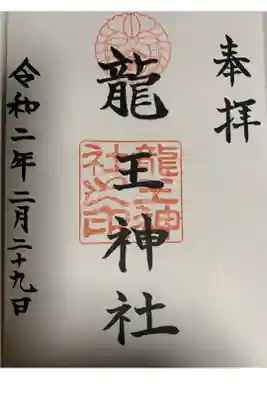 奉拝
龍王神社
龍王神社之印
令和二年二月二十九日